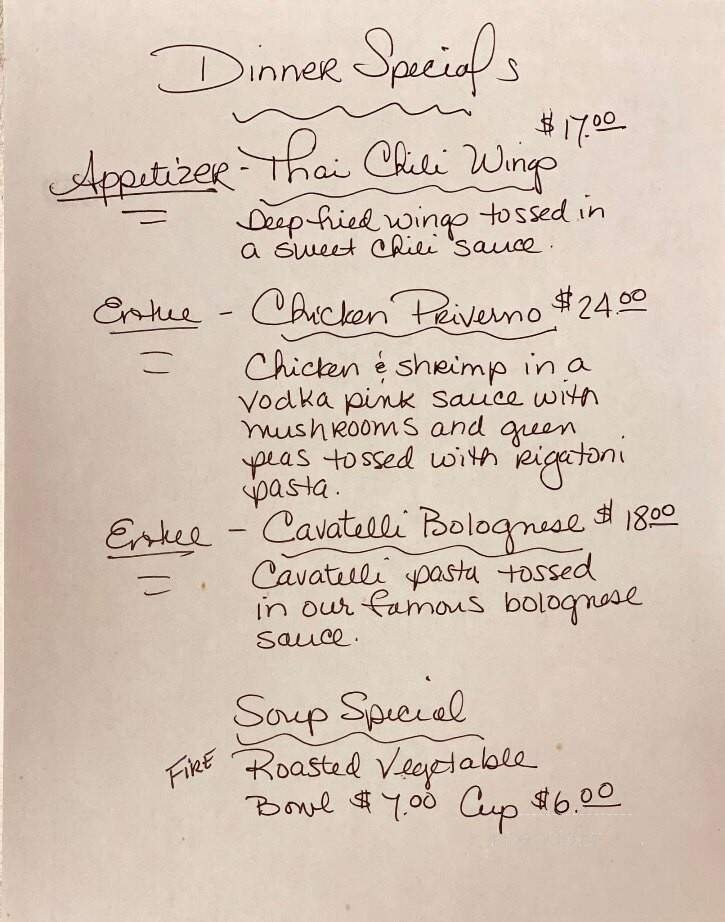 Dinner Specials
$17.00
Appetizer - Thai Chili Wings
Deep fried wings tossed in
a sweet chili sauce.
Entree - Chicken Priverno $24.00
Chicken & shrimp in a
vodka pink sauce with
mushrooms and green
peas tossed with rigatoni
pasta.
Entree - Cavatelli Bolognese $18.00
Cavatelli pasta tossed
in our famous bolognese
sauce.
Soup Special
FIRE Roasted Vegetable
Bowl $7.00 Cup $6.00